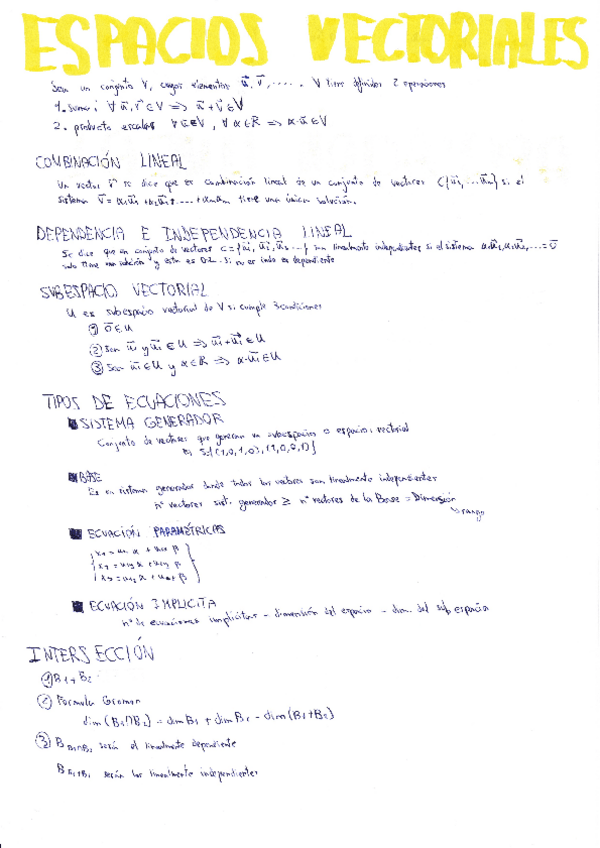 ESPACIOS VECTORIALES
Sea un conjunto V, cuyos elementos u⃗, v⃗, ..... V tiene definidas 2 operaciones
1. suma: ∀ u⃗, v⃗ ∈ V => u⃗ + v⃗ ∈ V
2. producto escalar ∀ u⃗ ∈ V, ∀ α ∈ R => α·u⃗ ∈ V
COMBINACIÓN LINEAL
Un vector v⃗ se dice que es combinación lineal de un conjunto de vectores C{u⃗1, ... u⃗n} si el
sistema v⃗ = α1u⃗1 + α2u⃗2 .... + αnu⃗n tiene una única solución.
DEPENDENCIA E INDEPENDENCIA LINEAL
Se dice que un conjunto de vectores C = {u⃗1, u⃗2, u⃗3 ...} son linealmente independientes si el sistema α1u⃗1, α2u⃗2, ... = 0⃗
solo tiene una solución y esta es 0. Si no es indo es dependiente
SUBESPACIO VECTORIAL
U es subespacio vectorial de V si cumple 3 condiciones
① 0⃗ ∈ U
② Sean u⃗1 y u⃗2 ∈ U => u⃗1 + u⃗2 ∈ U
③ Sea u⃗1 ∈ U y α ∈ R => α·u⃗1 ∈ U
TIPOS DE ECUACIONES
SISTEMA GENERADOR
Conjunto de vectores que generan un subespacio o espacio vectorial
S{(1,0,1,0), (1,0,0,1)}
BASE
Es un sistema generador donde todos los vectores son linealmente independientes
nº vectores sist. generador ≥ nº vectores de la Base = Dimensión
rango
ECUACIÓN PARAMÉTRICAS
ECUACIÓN IMPLICITA
nº de ecuaciones implicitas = dimensión del espacio - dim. del subespacio
INTERSECCIÓN
① B1 + B2
② Formula Grasman
dim (B1∩B2) = dim B1 + dim B2 - dim (B1+B2)
③ B B1∩B2 será el linealmente dependiente
B B1+B2 serán los linealmente independientes